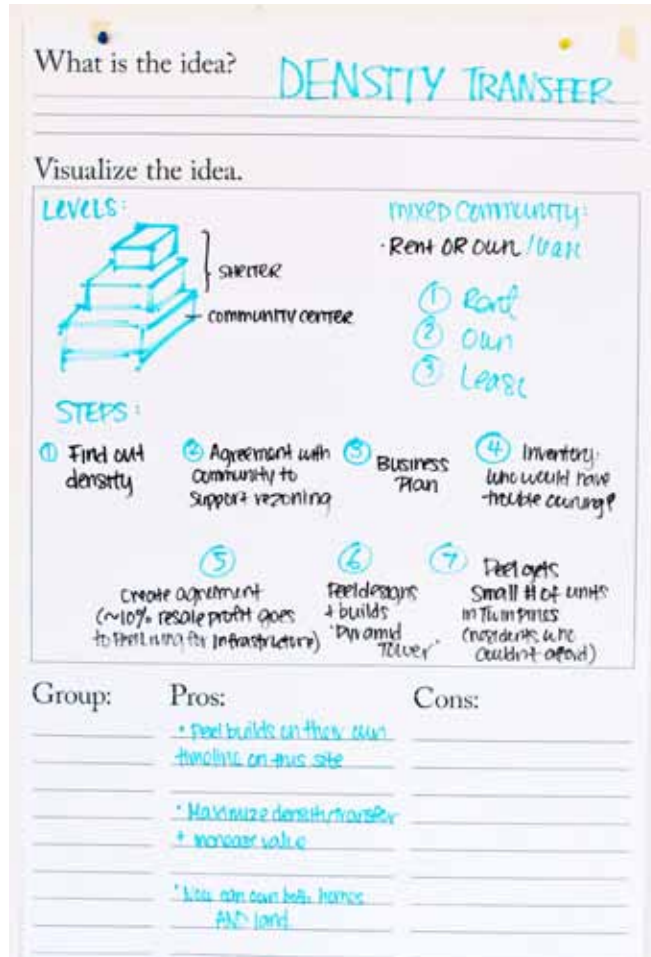 What is the idea?
DENSITY TRANSFER
Visualize the idea.
LEVELS:
SHELTER
COMMUNITY CENTER
MIXED COMMUNITY:
· Rent OR Own / Lease
① Rent
② Own
③ Lease
STEPS:
① Find out
density
② Agreement with
community to
support rezoning
③ Business
Plan
④ Inventory:
who would have
trouble owning?
⑤
Create agreement
(~10% resale profit goes
to Peel for infrastructure)
⑥
Peel designs
+ builds
"Pyramid
Tower"
⑦ Peel gets
small # of units
in Twin Pines
(residents who
couldn't afford)
Group:
Pros:
Cons:
· Peel builds on their own
timeline on this site
· Maximize density transfer
+ increase value
· Now can own both homes
AND land